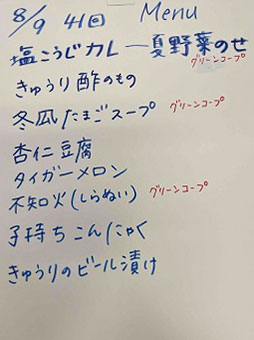 8/9 41回 Menu
塩こうじカレー夏野菜のせ
グリーンコープ
きゅうり酢のもの
冬瓜たまごスープ グリーンコープ
杏仁豆腐
タイガーメロン
不知火(しらぬい) グリーンコープ
子持ちこんにゃく
きゅうりのビール漬け